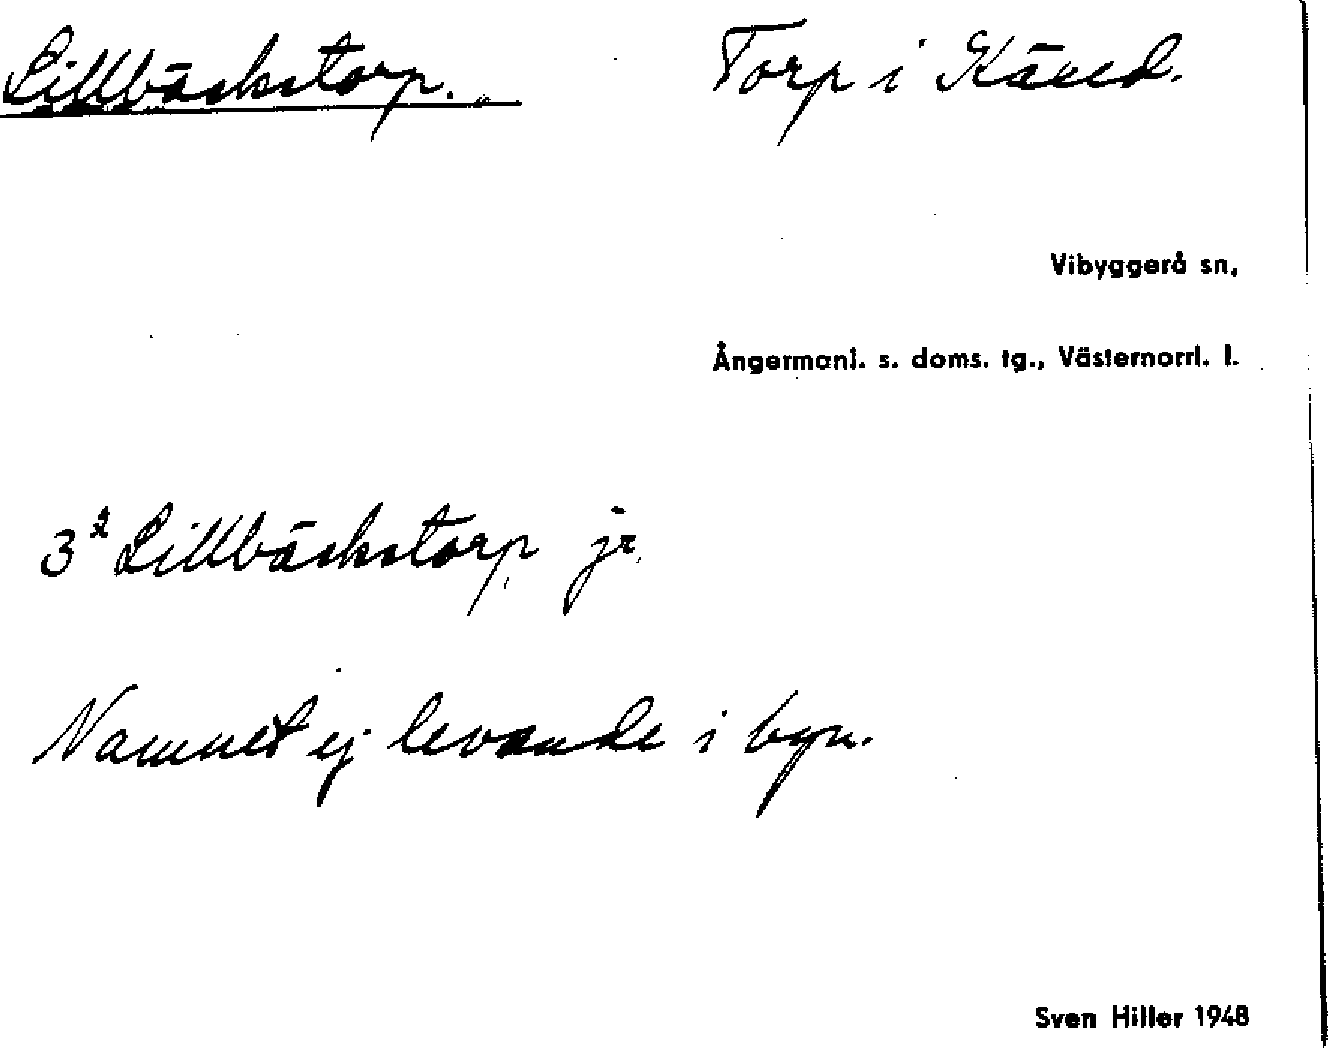 Lillbäckstorp. Torp i Käxed.
Vibyggerå sn,
Ångermanl. s. doms. tg., Västernorrl. l.
3² Lillbäckstorp jr.
Namnet ej levande i byn.
Sven Hiller 1948